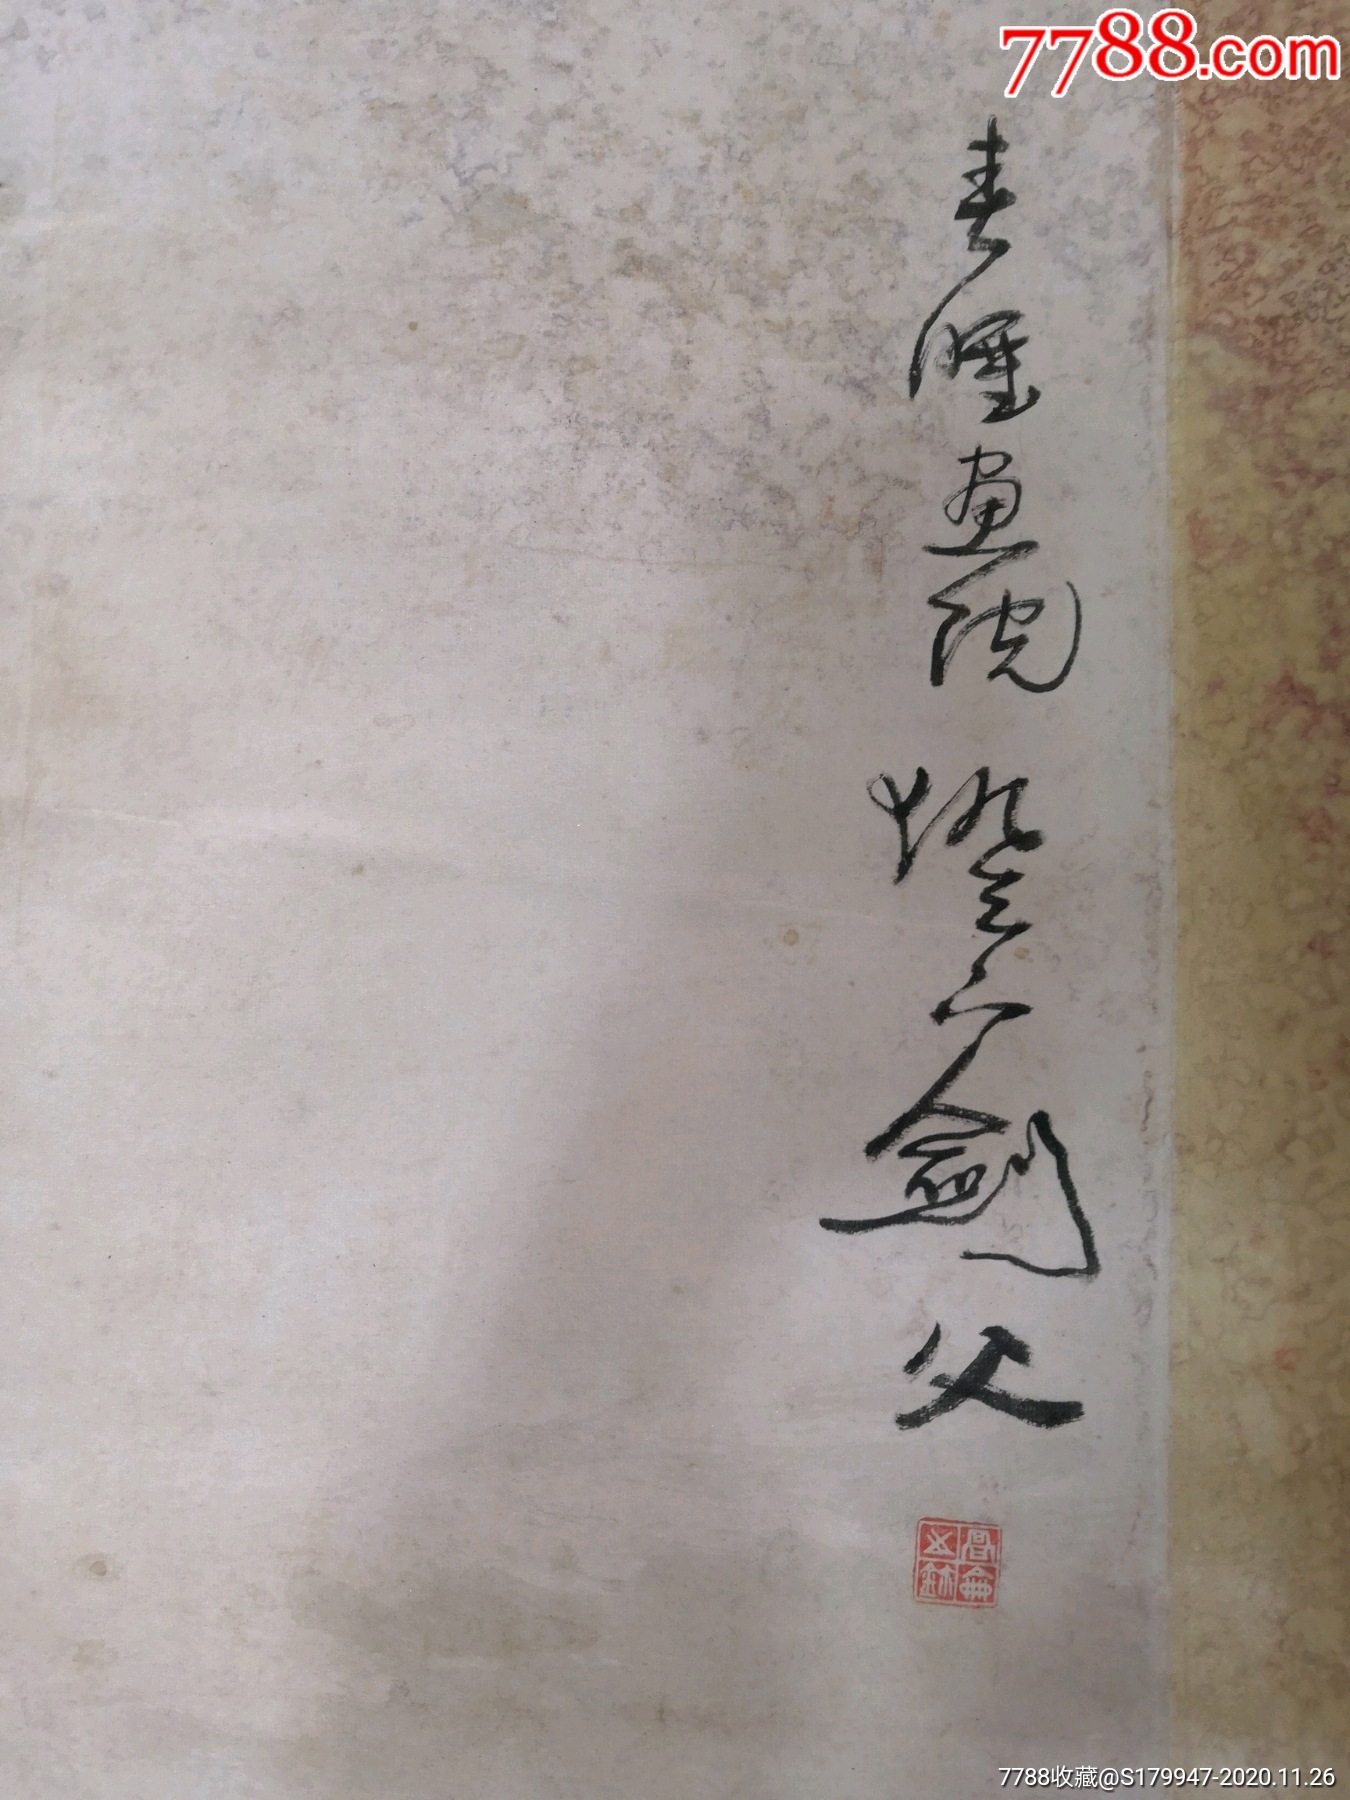 7788.com
春睡畫院燈下劍父
7788收藏@S179947-2020.11.26